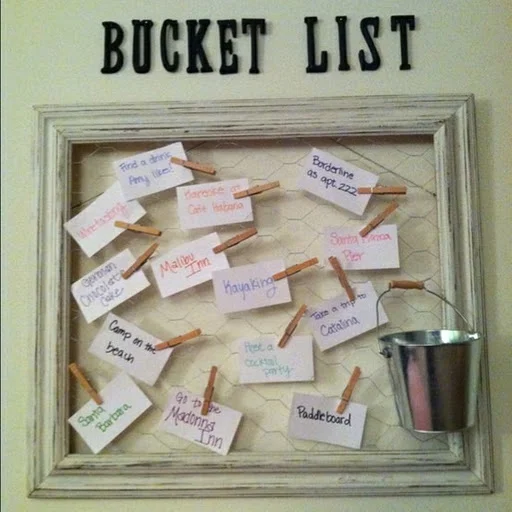 BUCKET LIST
Find a drink
Amy likes!
Borderline
as apt. 222
Wine tasting
Santa Monica
Pier
German
Chocolate
Cake
Malibu
Inn
Kayaking
Take a trip to
Catalina
Camp on the
beach
Host a
cocktail
party
Santa
Barbara
Go to the
Madonna
Inn
Paddleboard